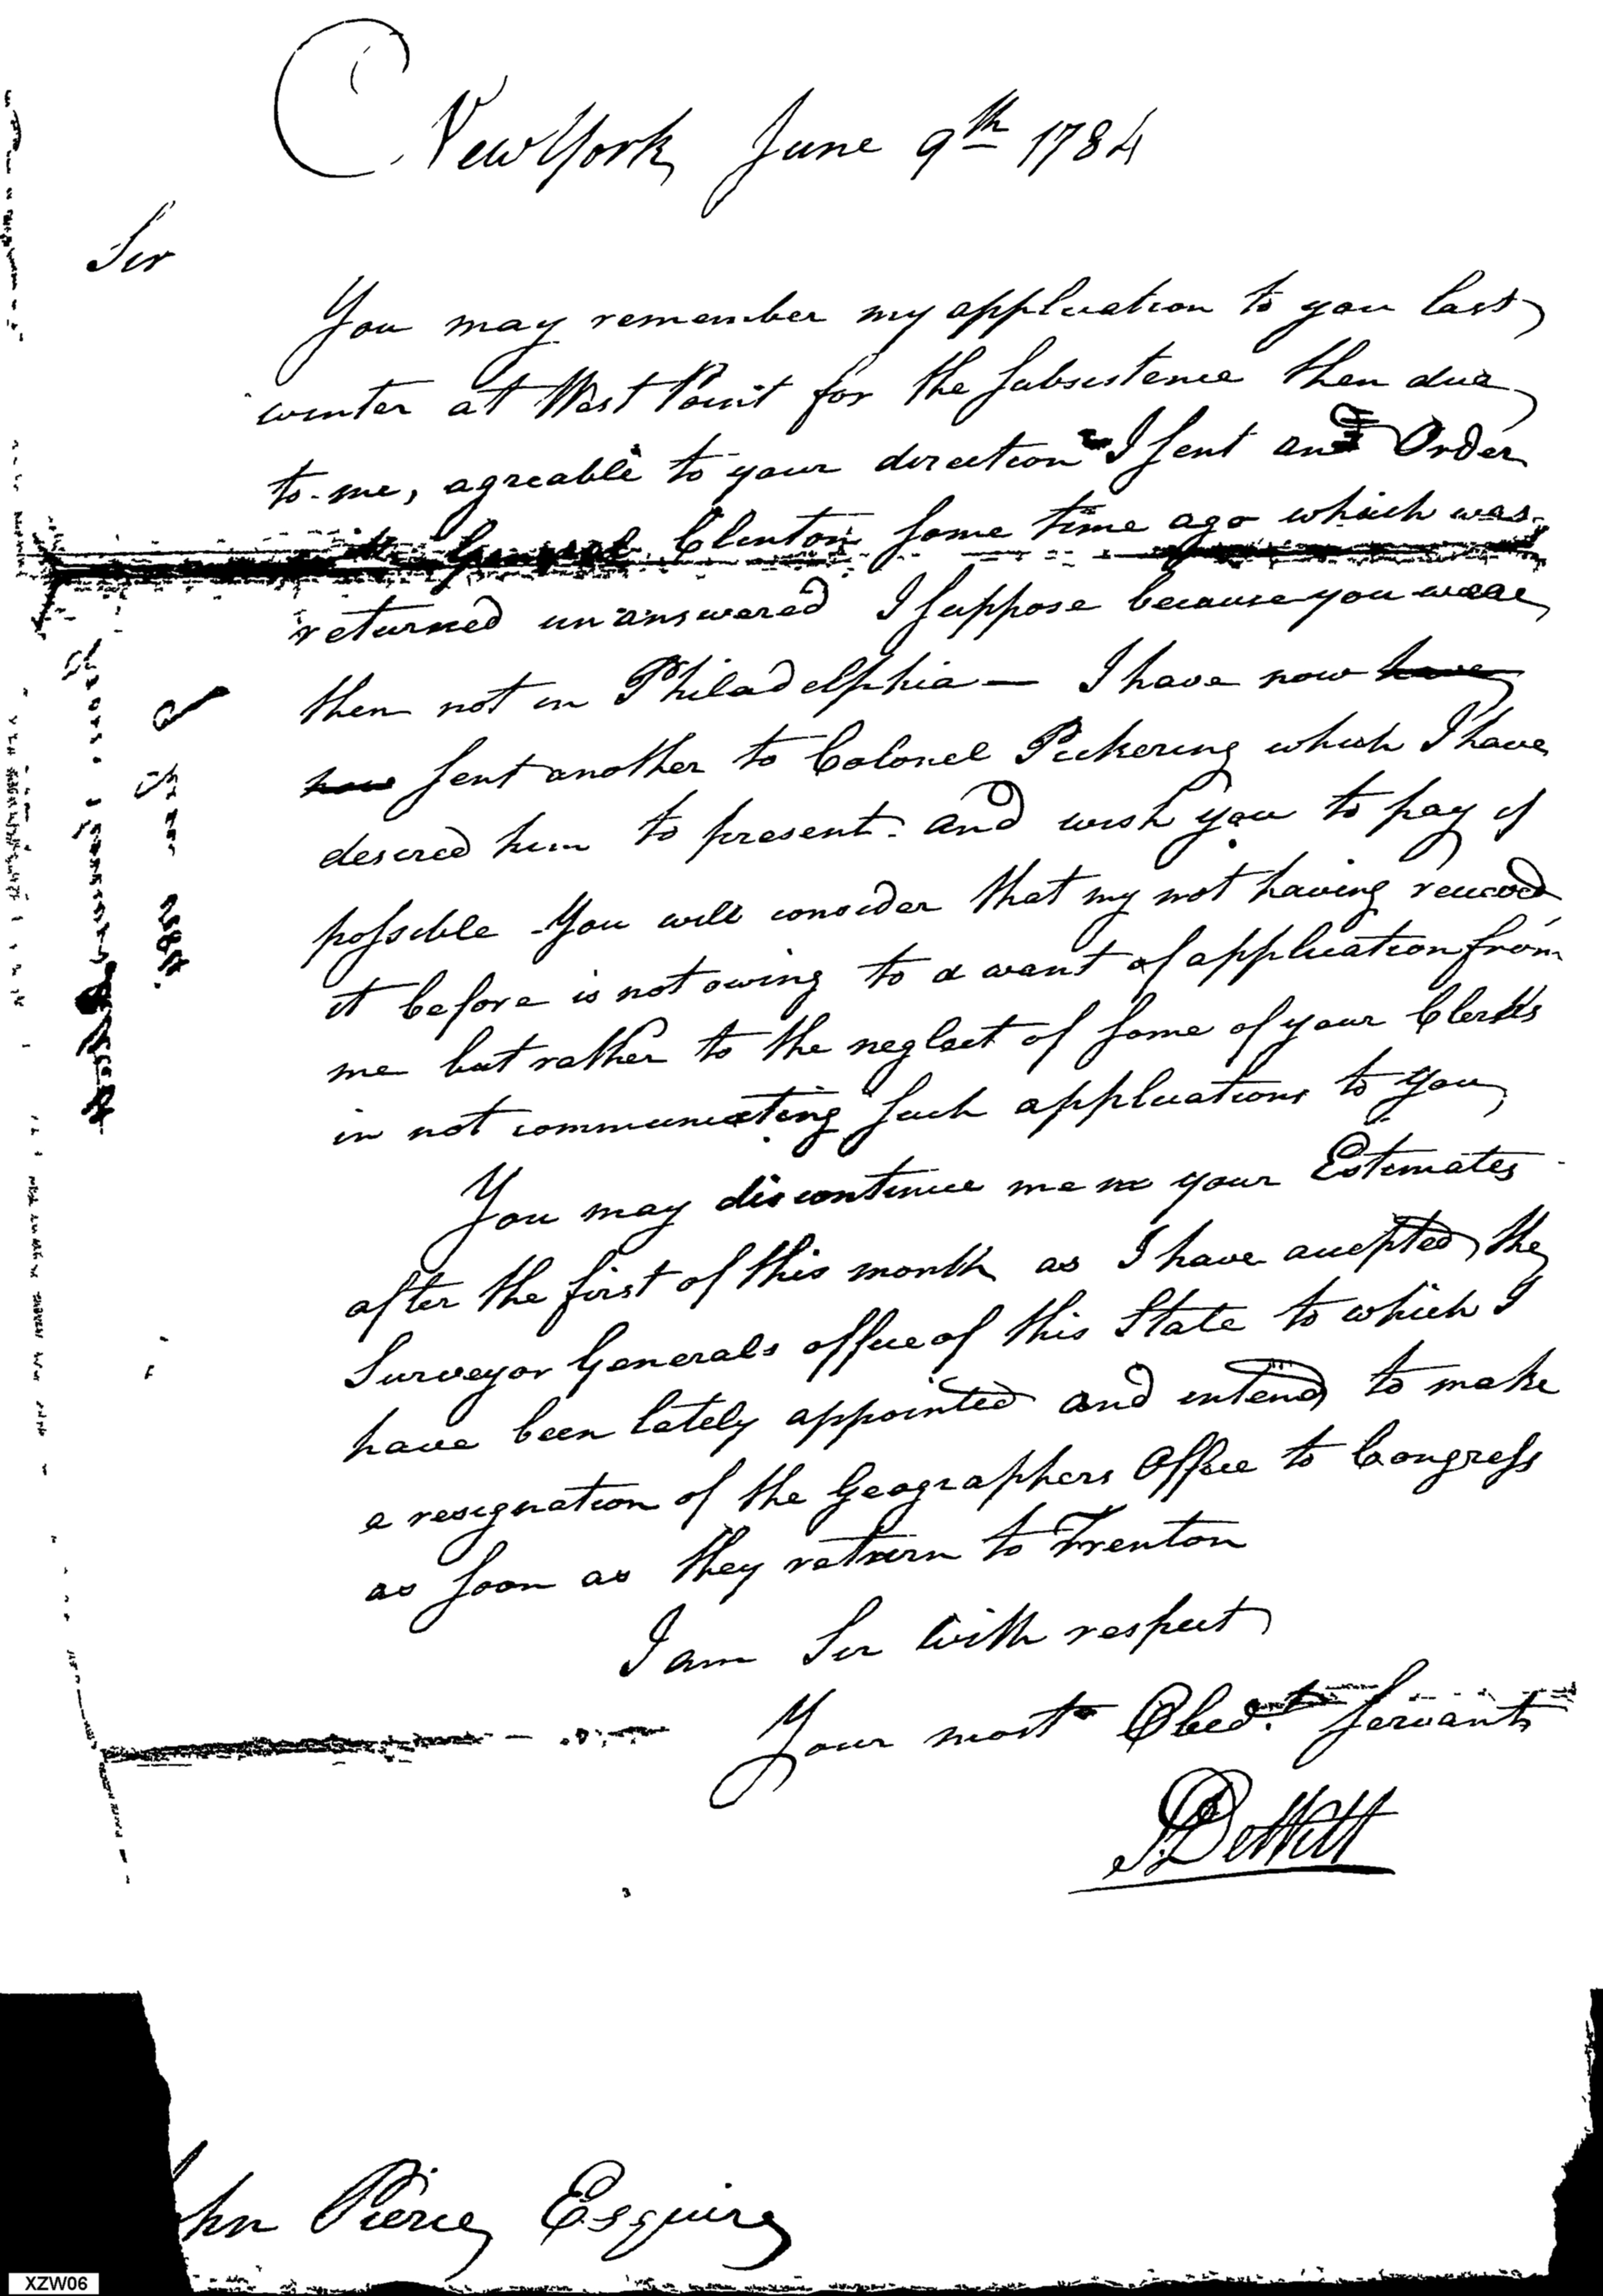 New York June 9th 1784
Sir
You may remember my application to you last
winter at West Point for the Subsistence then due
to me, agreable to your direction I sent an Order
General Clinton some time ago which was
returned unanswered I suppose because you weare
then not in Philadelphia — I have now have
now sent another to Colonel Pickering which I have
desired him to present and wish you to pay if
possible You will consider that my not having received
it before is not owing to a want of application from
me but rather to the neglect of some of your Clerks
in not communicating such applications to you
You may discontinue me in your Estimates
after the first of this month as I have accepted the
Surveyor Generals office of this State to which I
have been lately appointed and intend to make
a resignation of the Geographers Office to Congress
as soon as they return to Trenton
I am Sir with respect
Your most Obedt. Servant
S. DeWitt
hn Pierce Esquire
XZW06